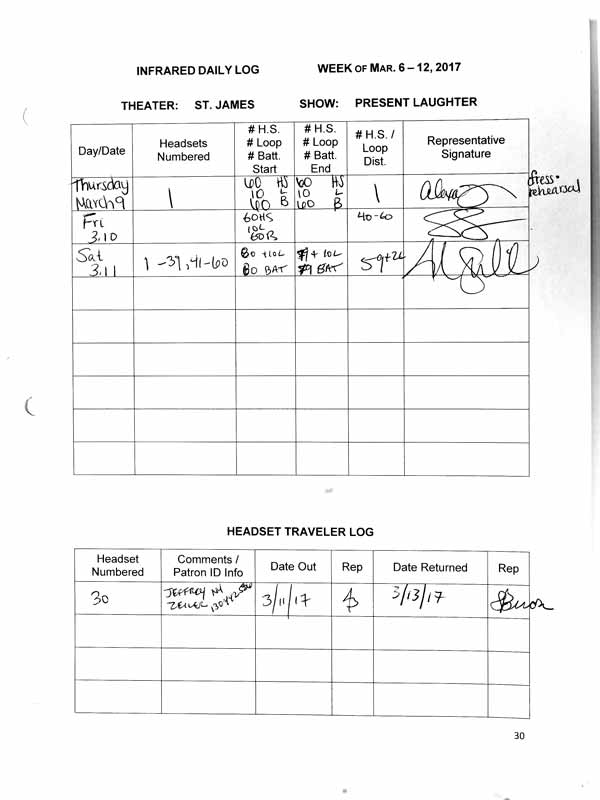 INFRARED DAILY LOG WEEK OF MAR. 6 – 12, 2017
THEATER: ST. JAMES SHOW: PRESENT LAUGHTER
Day/Date
Headsets
Numbered
# H.S.
# Loop
# Batt.
Start
# H.S.
# Loop
# Batt.
End
# H.S. /
Loop
Dist.
Representative
Signature
Thursday
March 9
1
60 HS
10 L
60 B
60 HS
10 L
60 B
1
dress
rehearsal
Fri
3.10
60HS
10L
60B
40-60
Sat
3.11
1 -39, 41-60
60 +10L
60 BAT
+ 10L
BAT
HEADSET TRAVELER LOG
Headset
Numbered
Comments /
Patron ID Info
Date Out
Rep
Date Returned
Rep
30
JEFFREY NY
ZEILER
3/11/17
3/13/17
30